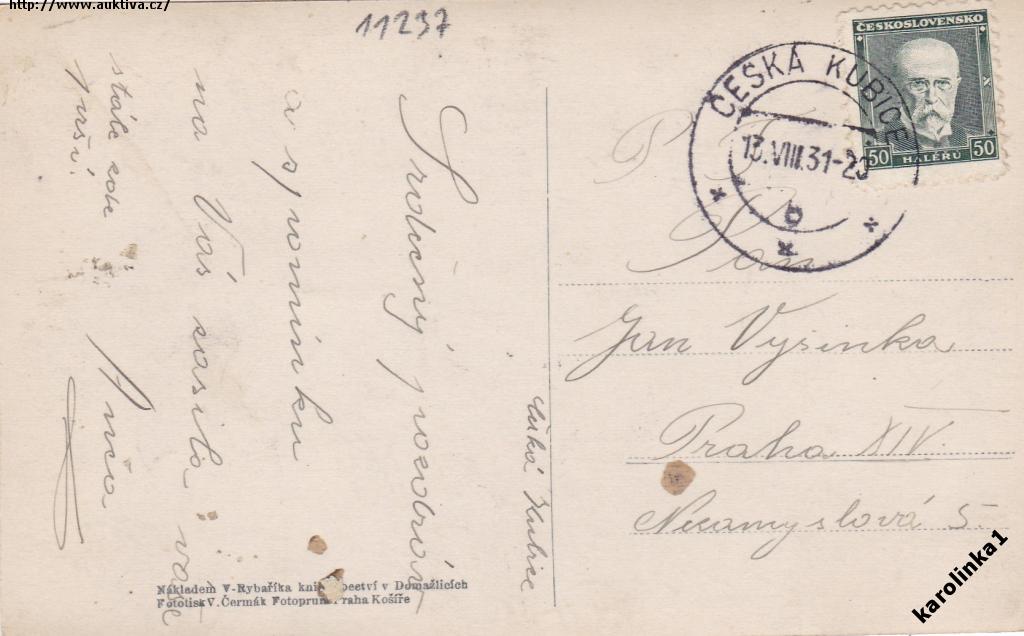 http://www.auktiva.cz/
11237
Srdečný pozdrav
a vzpomínku
na Vás zasílá vaše
stále
Anča
Česká Kubice
ČESKOSLOVENSKO
50 HALÉŘŮ 50
ČESKÁ KUBICE
13.VIII.31-20
b
P. T.
Pan
Jan Vyšinka
Praha XIV.
Necamyslová 5.
Nákladem V-Rybaříka kni pectví v Domažlicích
Fototisk V. Čermák Fotopru Praha Košíře
karolinka1